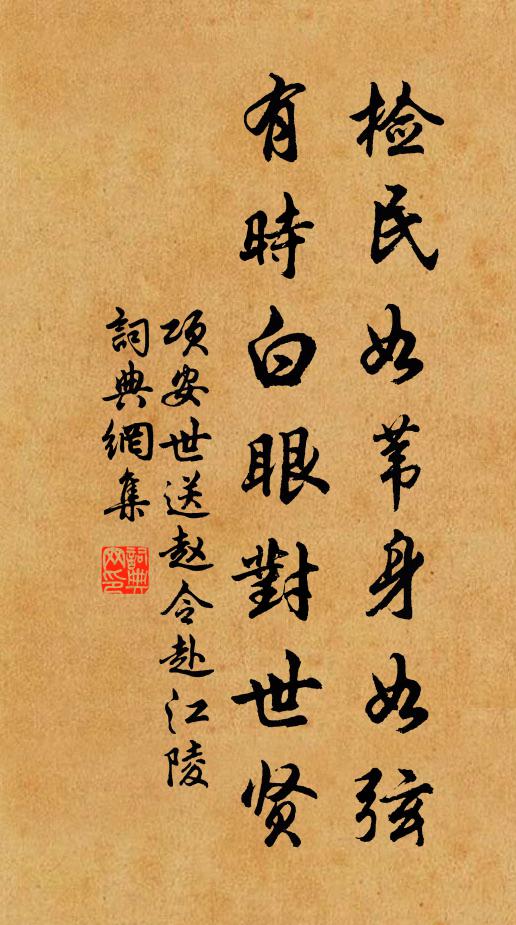 检民如苇身如弦
有時白眼對世贤
项安世送赵令赴江陵
詞典網集
詞典網印